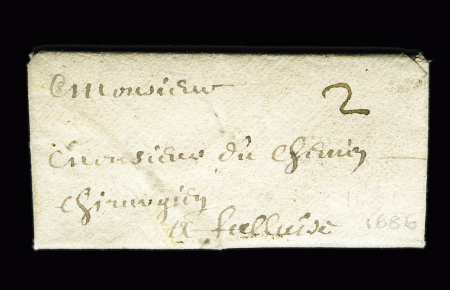 Monsieur
2
Monsieur du Chemin
Chirurgien
A falluise
1686